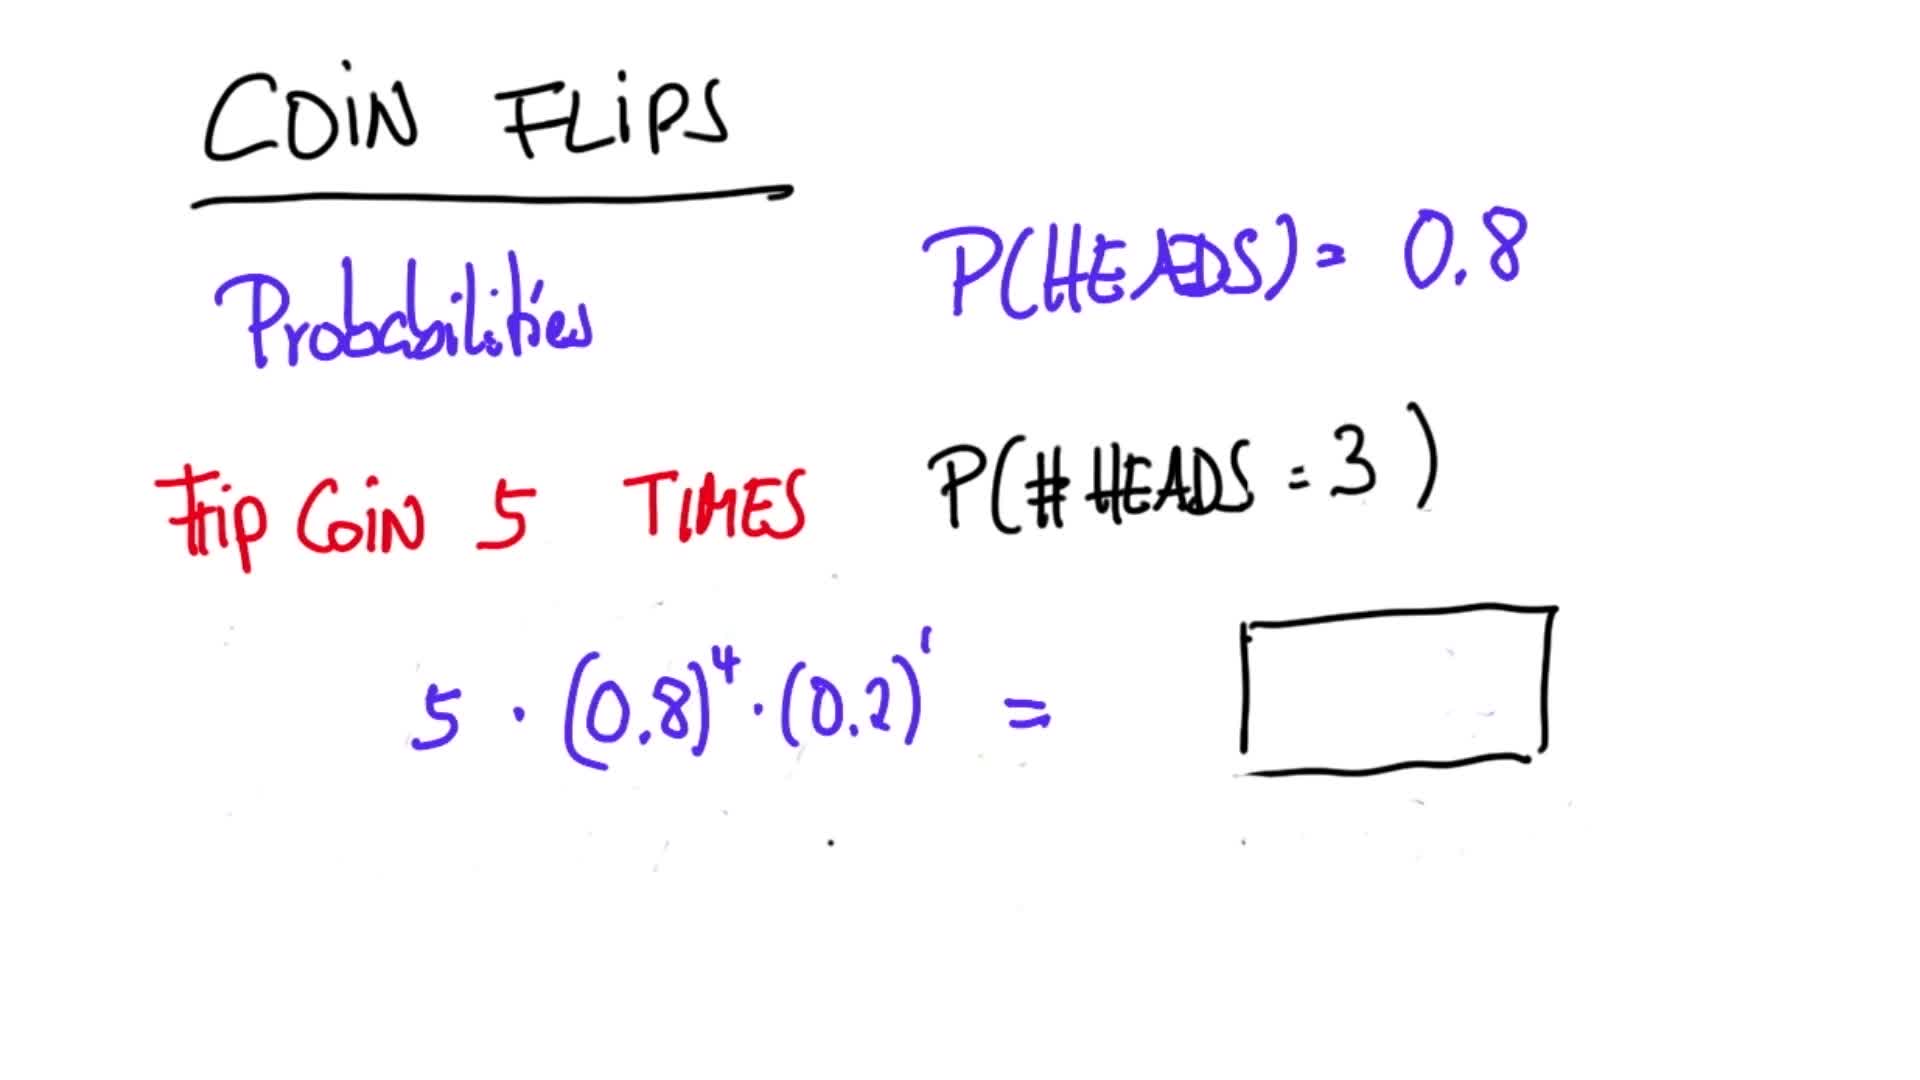 COIN FLIPS
Probabilities
P(HEADS) = 0.8
Flip COIN 5 TIMES
P(# HEADS = 3)
5 · (0.8)⁴ · (0.2)¹ =